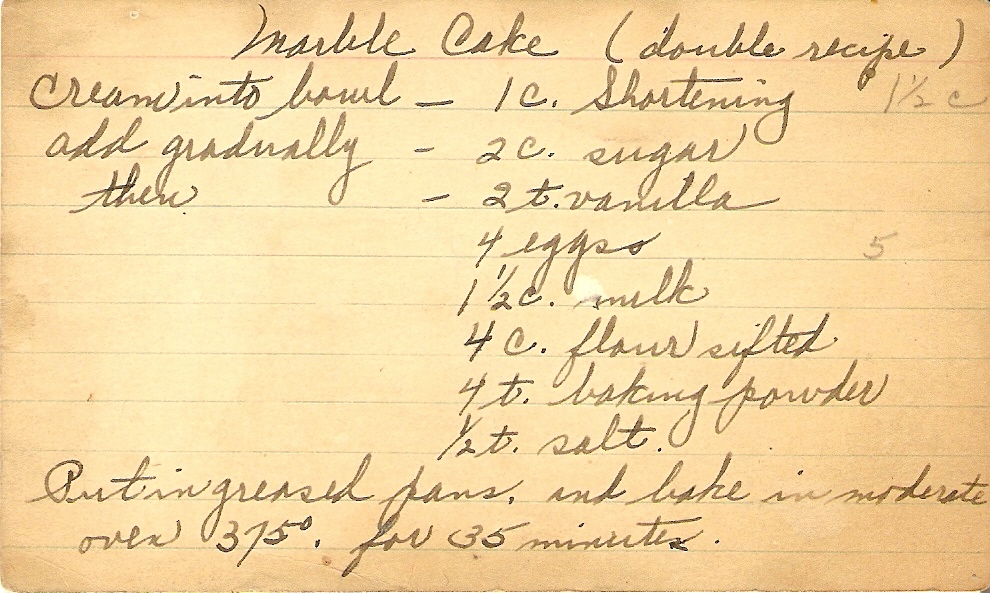 Marble Cake (double recipe)
Cream into bowl – 1 c. Shortening 1½ c
add gradually - 2 c. sugar
then - 2 t. vanilla
4 eggs 5
1½ c. milk
4 c. flour sifted
4 t. baking powder
½ t. salt.
Put in greased pans, and bake in moderate
oven 375°. for 35 minutes.